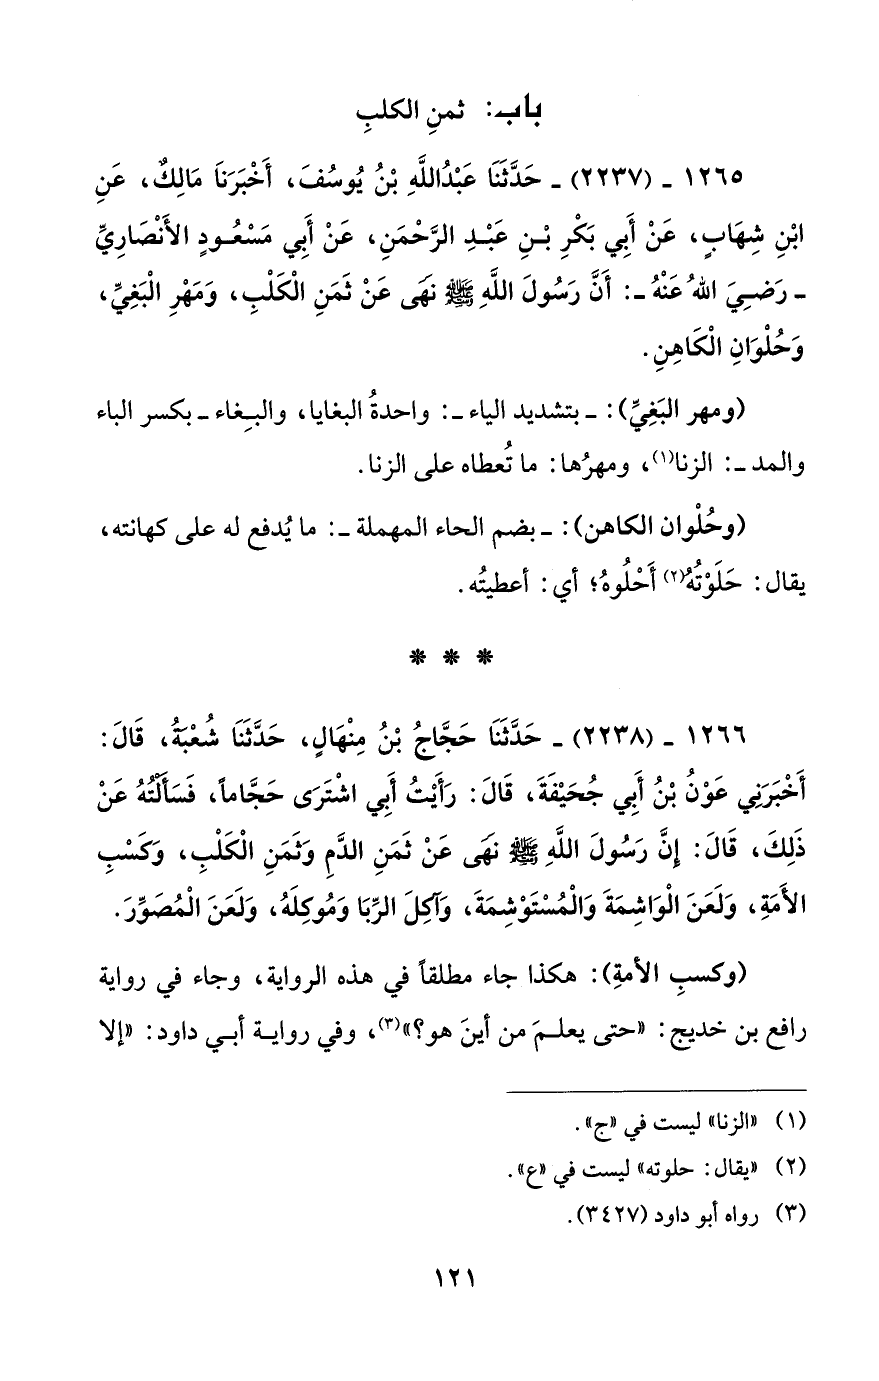 باب: ثمنِ الكلبِ
١٢٦٥ ـ (٢٢٣٧) ـ حَدَّثَنَا عَبْدُاللَّهِ بْنُ يُوسُفَ، أَخْبَرَنَا مَالِكٌ، عَنِ
ابْنِ شِهَابٍ، عَنْ أَبِي بَكْرِ بْنِ عَبْدِ الرَّحْمَنِ، عَنْ أَبِي مَسْعُودٍ الأَنْصَارِيِّ
ـ رَضِيَ اللهُ عَنْهُ ـ: أَنَّ رَسُولَ اللَّهِ ﷺ نَهَى عَنْ ثَمَنِ الْكَلْبِ، وَمَهْرِ الْبَغِيِّ،
وَحُلْوَانِ الْكَاهِنِ.
(ومهر البَغِيِّ): ـ بتشديد الياء ـ: واحدةُ البغايا، والبِغاء ـ بكسر الباء
والمد ـ: الزنا(١)، ومهرُها: ما تُعطاه على الزنا.
(وحُلْوان الكاهن): ـ بضم الحاء المهملة ـ: ما يُدفع له على كهانته،
يقال: حَلَوْتُهُ(٢) أَحْلُوهُ؛ أي: أعطيتُه.
* * *
١٢٦٦ ـ (٢٢٣٨) ـ حَدَّثَنَا حَجَّاجُ بْنُ مِنْهَالٍ، حَدَّثَنَا شُعْبَةُ، قَالَ:
أَخْبَرَنِي عَوْنُ بْنُ أَبِي جُحَيْفَةَ، قَالَ: رَأَيْتُ أَبِي اشْتَرَى حَجَّاماً، فَسَأَلْتُهُ عَنْ
ذَلِكَ، قَالَ: إِنَّ رَسُولَ اللَّهِ ﷺ نَهَى عَنْ ثَمَنِ الدَّمِ وَثَمَنِ الْكَلْبِ، وَكَسْبِ
الأَمَةِ، وَلَعَنَ الْوَاشِمَةَ وَالْمُسْتَوْشِمَةَ، وَآكِلَ الرِّبَا وَمُوكِلَهُ، وَلَعَنَ الْمُصَوِّرَ.
(وكسبِ الأمةِ): هكذا جاء مطلقاً في هذه الرواية، وجاء في رواية
رافع بن خديج: «حتى يعلمَ من أينَ هو؟»(٣)، وفي رواية أبي داود: «إلا
(١) «الزنا» ليست في «ج».
(٢) «يقال: حلوته» ليست في «ع».
(٣) رواه أبو داود (٣٤٢٧).
١٢١